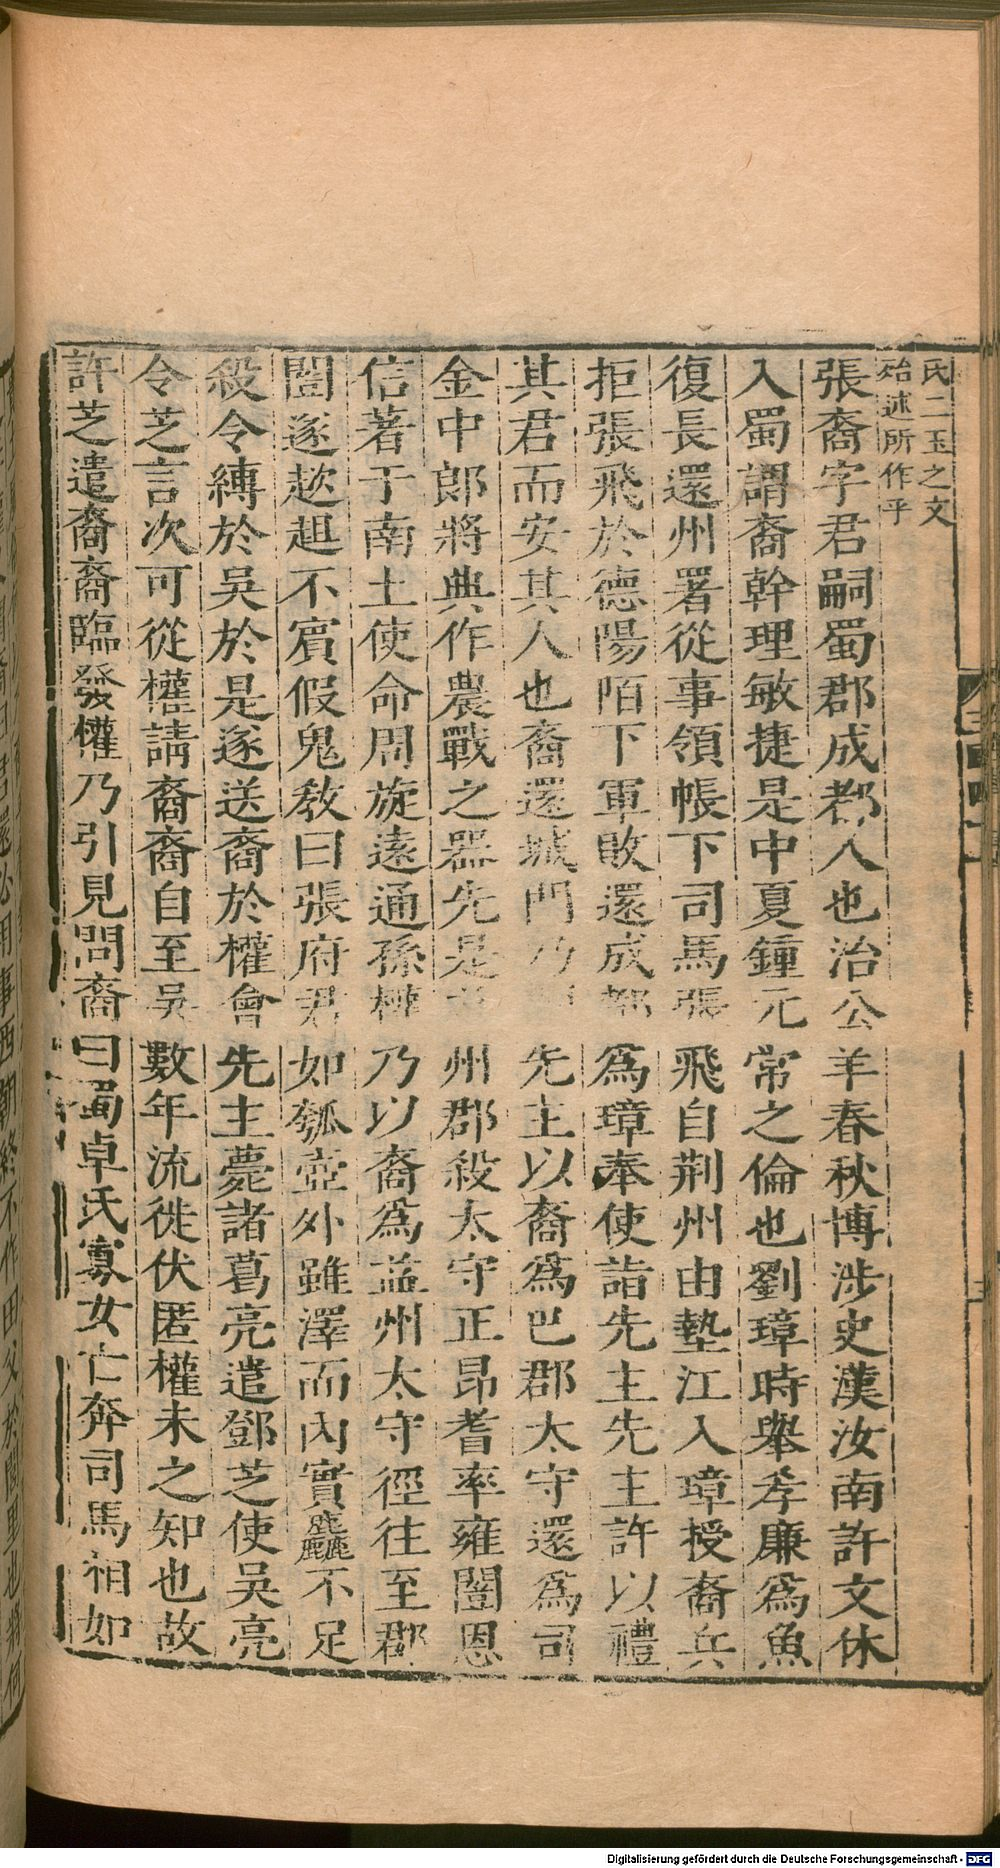 氏二王之文
殆述所作乎
張裔字君嗣蜀郡成都人也治公羊春秋博涉史漢汝南許文休
入蜀謂裔幹理敏捷是中夏鍾元常之倫也劉璋時舉孝廉為魚
復長還州署從事領帳下司馬張飛自荆州由墊江入璋授裔兵
拒張飛於德陽陌下軍敗還成都為璋奉使詣先主先主許以禮
其君而安其人也裔還城門乃 先主以裔為巴郡太守還為司
金中郎將典作農戰之器先是 州郡殺太守正昂耆率雍闓恩
信著于南土使命周旋遠通孫權乃以裔為益州太守徑往至郡
闓遂趑趄不賓假鬼教曰張府君如瓠壺外雖澤而內實麤不足
殺令縛於吳於是遂送裔於權會先主薨諸葛亮遣鄧芝使吳亮
令芝言次可從權請裔裔自至吳數年流徙伏匿權未之知也故
許芝遣裔裔臨發權乃引見問裔曰蜀卓氏寡女亡奔司馬相如
Digitalisierung gefördert durch die Deutsche Forschungsgemeinschaft - DFG